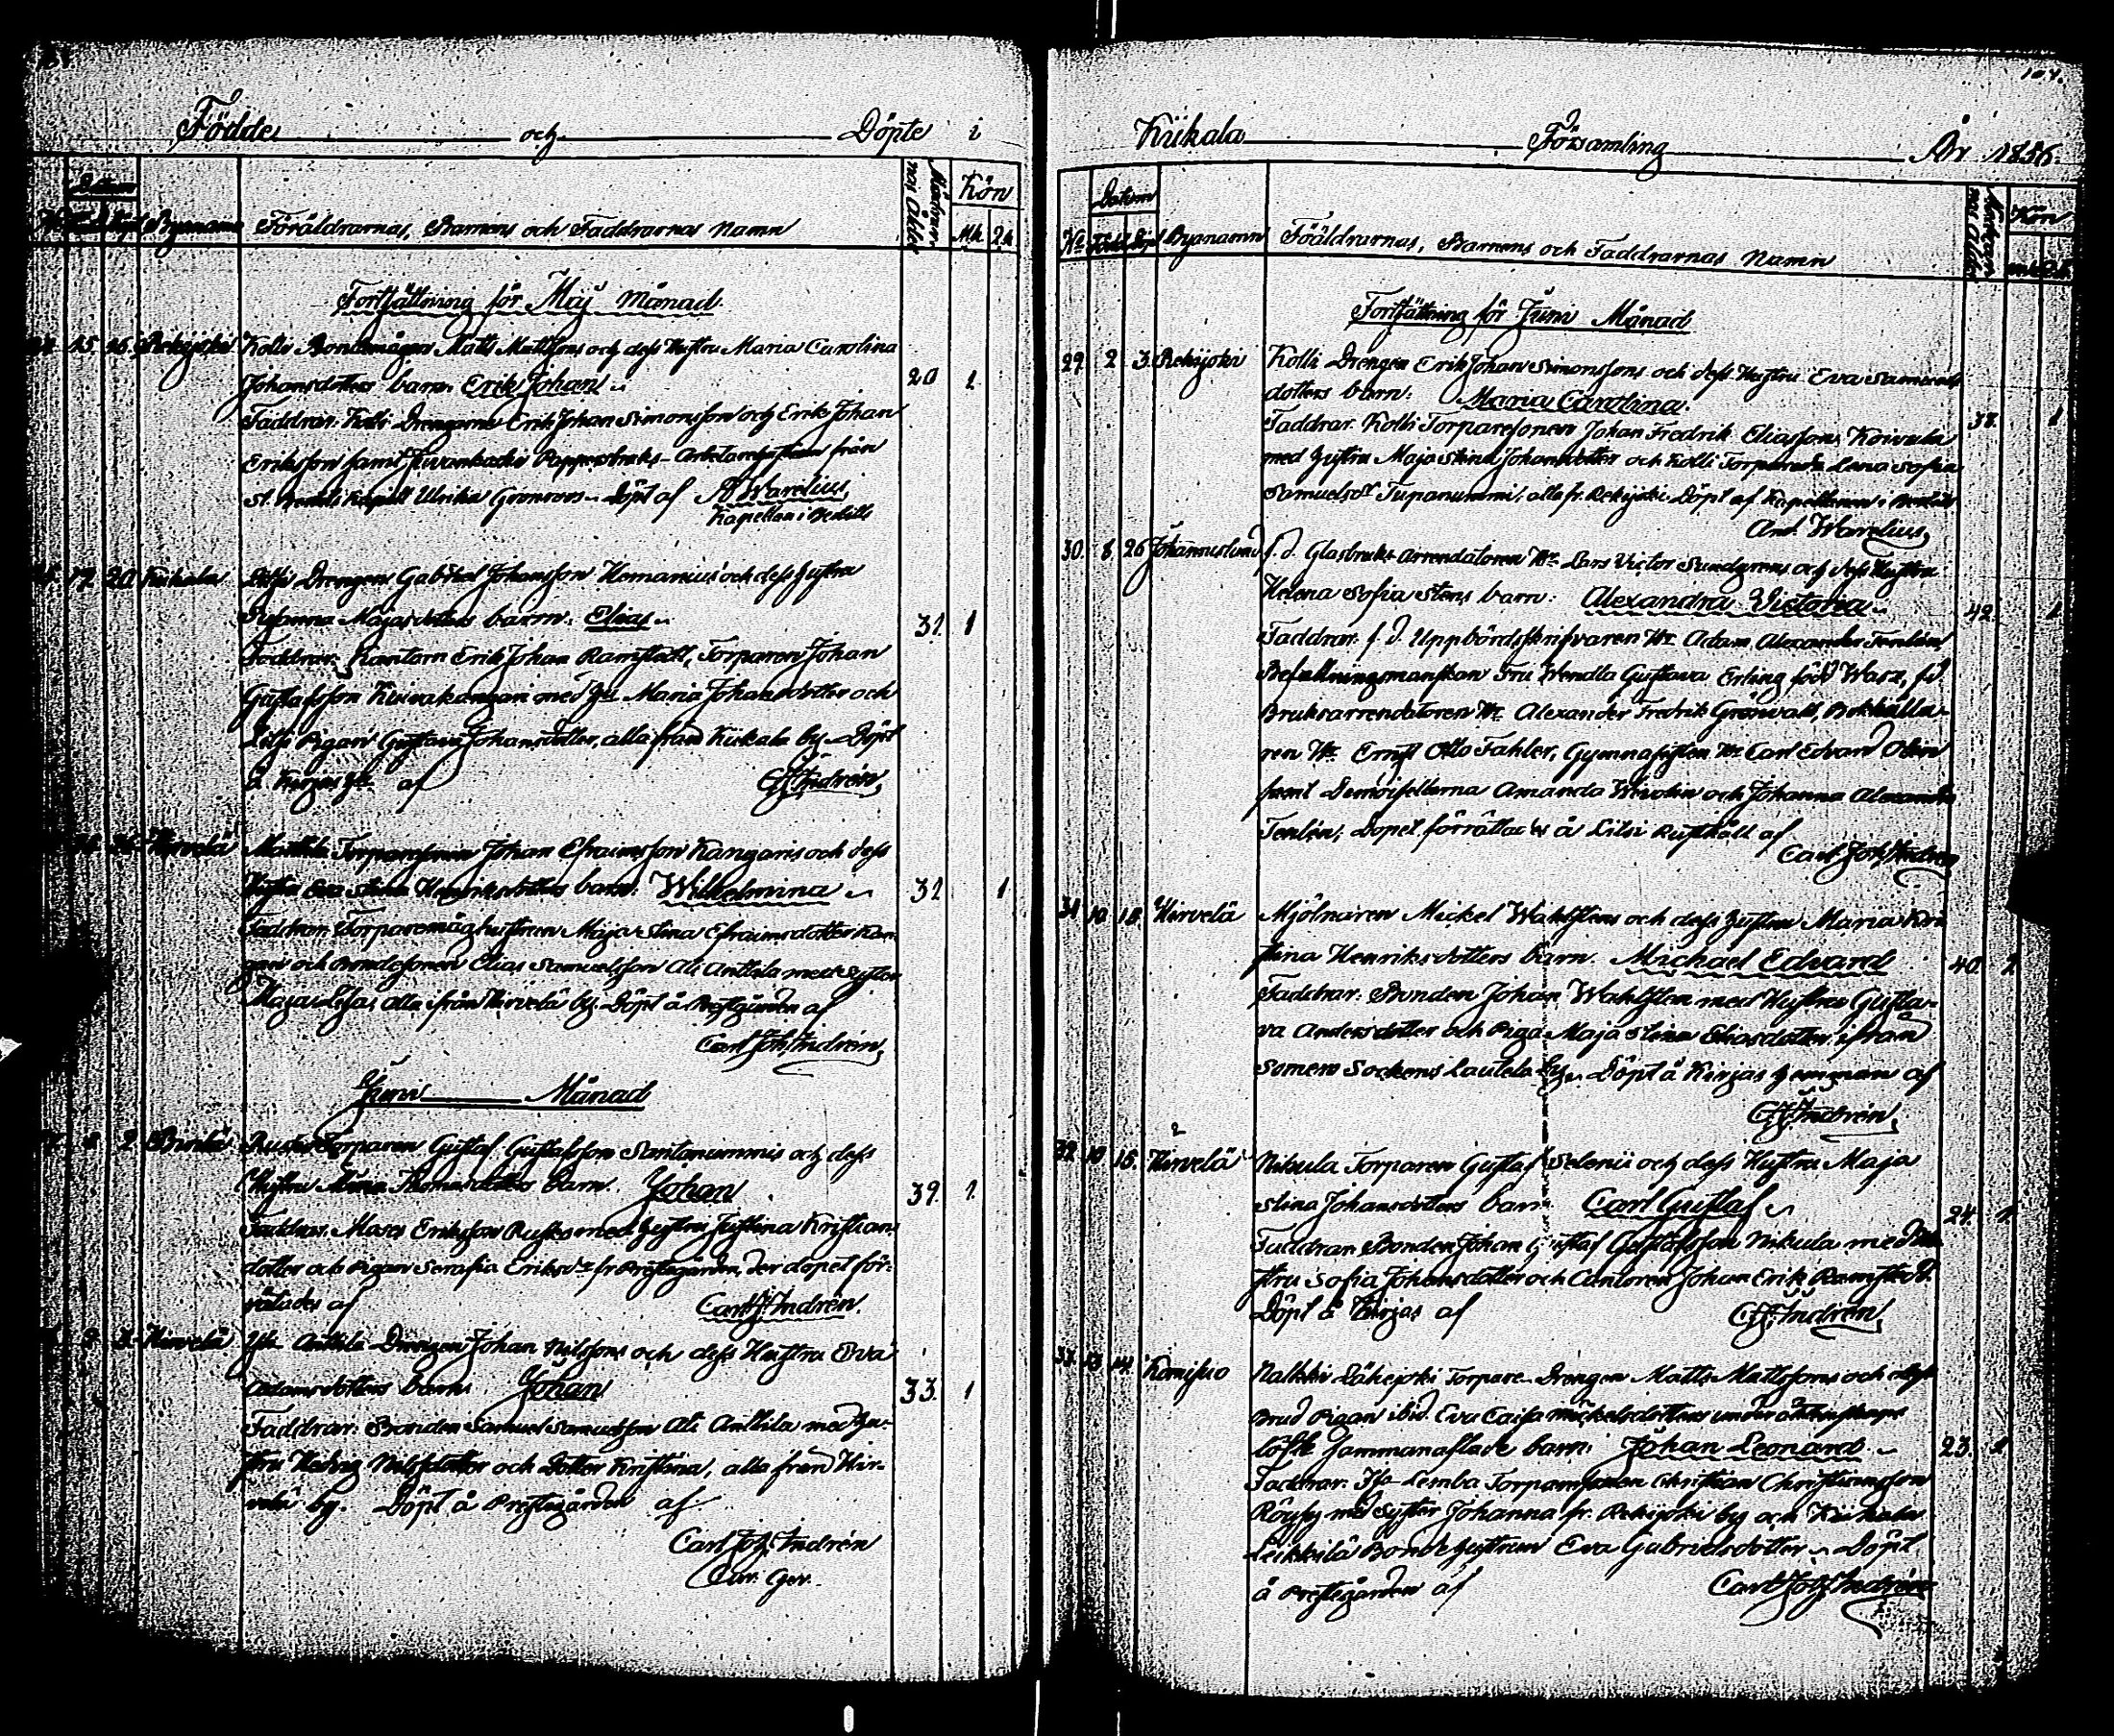 104.
Födde och Döpte i
Kiikala Församling År 1856.
Datum
Byanamn Föräldrarnas, Barnens och Faddrarnas Namn Kön
Mk Qk
Fortsättning för Maij Månad.
25 26 Rekijoki Kolli Bondemågen Matts Mattssons och dess Hustru Maria Carolina
Johansdotters barn: Erik Johan 20 1
Faddrar: Kolli Drengarne Erik Johan Simonsson och Erik Johan
Eriksson samt Pappersbruks-Arbetarehustrun från
Ulrika Grönroos. Döpt af A Warelius,
Kapellan i
20 Kiikala Drengen Gabriel Johansson Hemanius och dess hustru
Susanna Majasdotters barn: Elias 31. 1
Faddrar: Kantorn Erik Johan Ramstedt, Torparen Johan
Gustafsson Kuivakangari med hu Maria Johansdotter och
Pigan Gustava Johansdotter, alla från Kiikala by. Döpt
å Kirjas af C J Indrén,
Hirvelä Torparesonen Johan Efraimsson Kangaris och dess
hustru Eva Stina Henriksdotters barn: Wilhelmina 32 1
Faddrar: Torparemåghustrun Maja Stina Efraimsdotter
och Bondesonen Elias Samuelsson Ali Anttila med Syster
Maja Lisa, alla ifrån Hirvelä by. Döpt å Prestgården af
Carl Joh Indrén,
Juni Månad
2 Torparen Gustaf Gustafsson Santanummis och dess
Hustru Thomasdotters barn. Johan 39. 1.
Faddrar. Moses Eriksson Rusko med hustru Justina Kristians
dotter och Pigan Serafia Eriksdr fr Prestegården, der dopet för-
rätades af Carl J Indrén.
3 Hirvelä Anttila Drengen Johan Nilssons och dess Hustru Eva
Adamsdotters barn. Johan 33. 1
Faddrar: Bonden Samuel Samuelsson Ali Anttila med Hu-
stru Hedvig Nilsdotter och Dotter Kristina, alla från Hir-
velä by. Döpt å Prestegården af
Carl Joh Indrén
Cur. Ger.
Datum
No Född Döpt Byanamn Föräldrarnas, Barnens och Faddrarnas Namn Kön
Fortsättning för Juni Månad
29. 2 3. Rekijoki Kolli Drengen Erik Johan Simonssons och dess Hustru Eva Samuels
dotters barn: Maria Carolina. 38. 1
Faddrar. Kolli Torparesonen Johan Fredrik Eliasson Koivula
med hustru Maja Stina Johansdotter och Kolli Lena Sofia
Samuelsdr Tupanummi, alla fr. Rekijoki. Döpt af Kapellanen i
And. Warelius,
30. 8. 26 Johannislund f. d. Glasbruks Arrendatoren Hr Lars Victor Sundgrens och dess Hustru
Helena Sofia Stens barn: Alexandra Victoria. 42. 1
Faddrar. f. d. Uppbördsskrifvaren Hr Adam Alexander Tenlén,
Befallningsmanskan Fru Wendla Gustava Erling född Warz, f.d.
Bruksarrendatoren Hr Alexander Fredrik Gröswall, Bokhålla-
ren Hr Ernst Otto Fahler, Gymnasisten Hr Carl Edvard
samt Demoisellerna Amanda och Johanna Alexandra
Tenlén; Dopet förrättades å Litsi Rusthåll af
Carl Joh Indrén
31. 10. 18. Hirvelä Mjölnaren Mickel Wahlstens och dess hustru Maria Kri
stina Henriksdotters barn. Michael Edvard 40. 1.
Faddrar. Bonden Johan Wahlsten med Hustru Gusta-
va Andersdotter och Piga Maja Stina Eliasdotter ifrån
Somero Sockens Lautela by. Döpt å Kirjas hemman af
C J Indrén,
32. 10 15. Hirvelä Nikula Torparen Gustaf Selenii och dess Hustru Maja
Stina Johansdotters barn. Carl Gustaf 24. 1.
Faddrar. Bonden Johan Gustaf Gustafsson Nikula med Hu
stru Sofia Johansdotter och Cantoren Johan Erik Ramstedt.
Döpt å Kirjas af C J Indrén,
33. 13 14. Komisuo Nalkki Lähejoki Torpare-Drengen Matts Mattssons och dess
Brud Pigan ibid. Eva Caisa Mickelsdotters under äktenskaps
löfte sammanaflade barn. Johan Leonard. 23. 1
Faddrar. Lemba Christian Christiansson
med Syster Johanna fr. Rekijoki by och Kiikala
Leikkilä Bondehustrun Eva Gabrielsdotter. Döpt
å Prestegården af Carl Joh Indrén